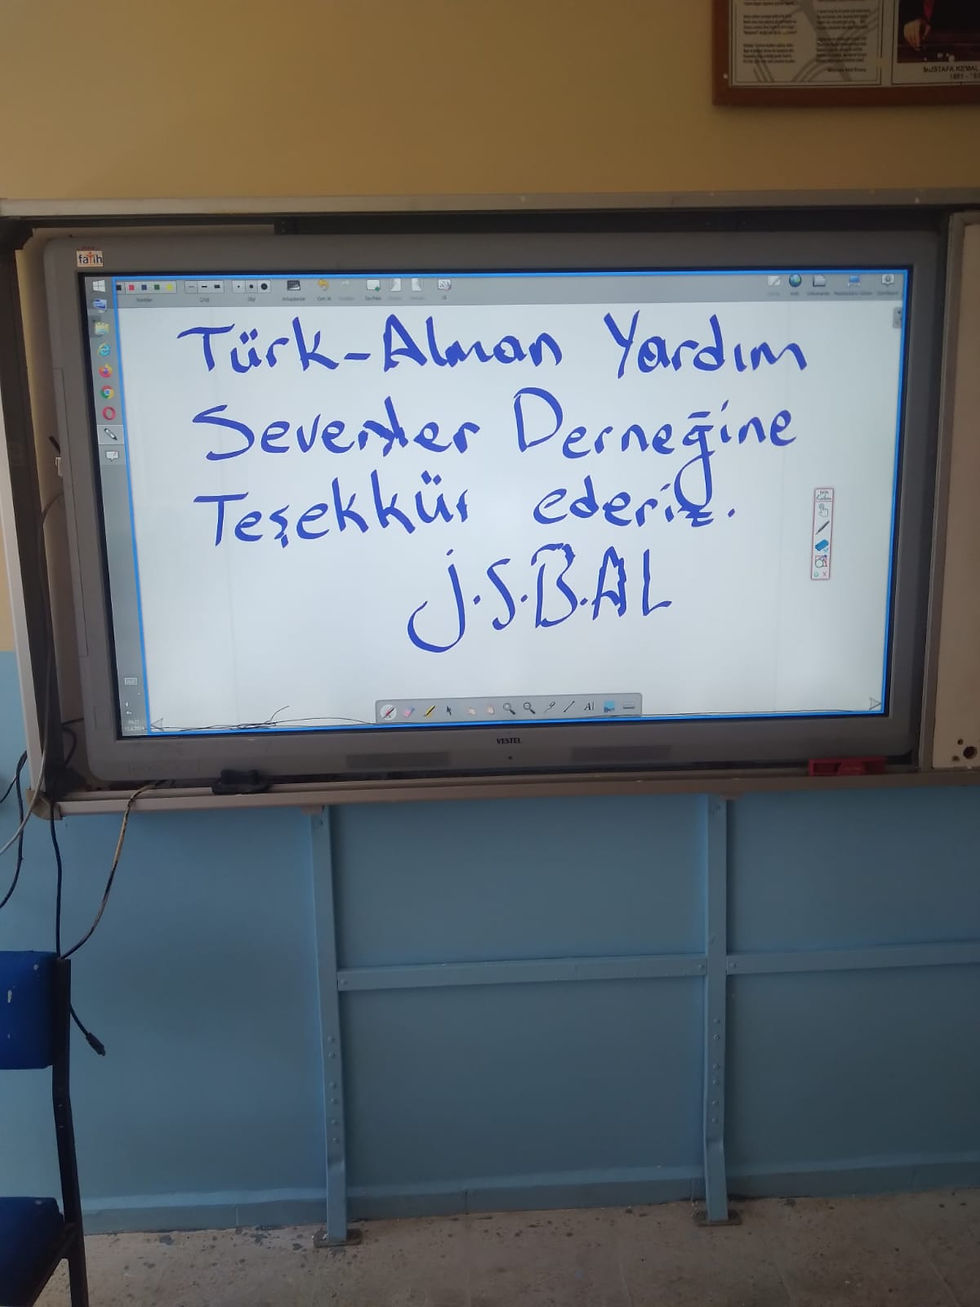 MUSTAFA KEMAL
fatih
Türk-Alman Yardım
Severler Derneğine
Teşekkür ederiz.
J.S.B.AL
VESTEL